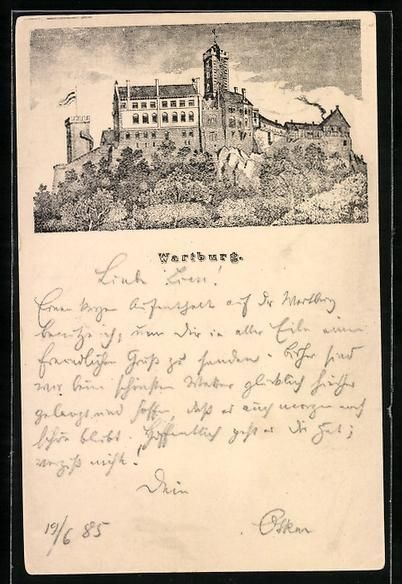 Wartburg.
Liebe
Einen kurzen Aufenthalt auf der Wartburg
benutze ich, um Dir in aller Eile einen
freundlichen Gruß zu senden. Bisher sind
wir beim schönsten Wetter glücklich hierher
gelangt und hoffen, daß es auch morgen noch
schön bleibt. Hoffentlich geht es Dir gut;
nicht.
Dein
19/6 85 Oskar